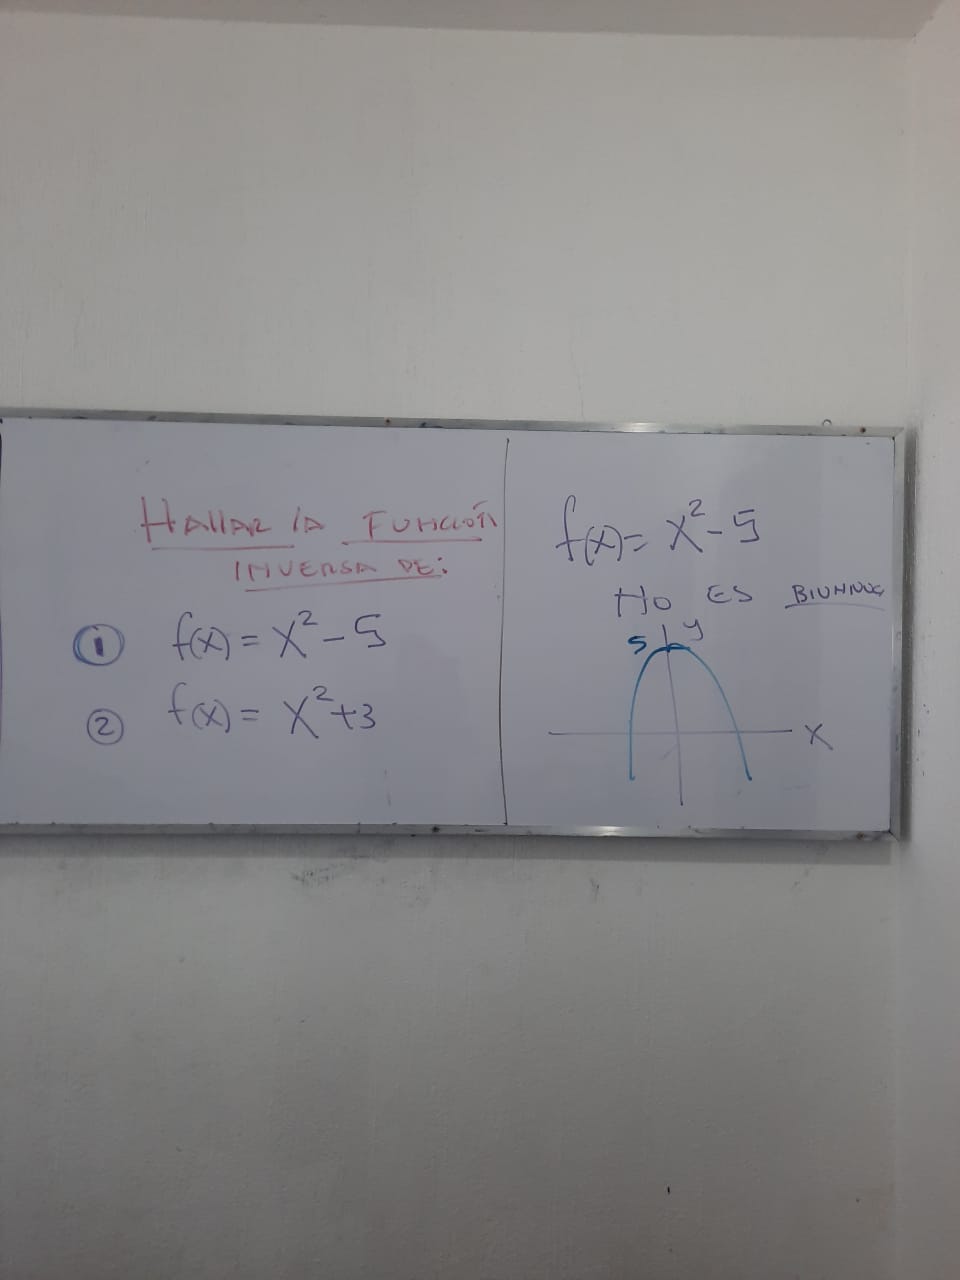 Hallar la Función
inversa de:
① f(x) = x² - 5
② f(x) = x² + 3
f(x) = x² - 5
No es
5 y
x